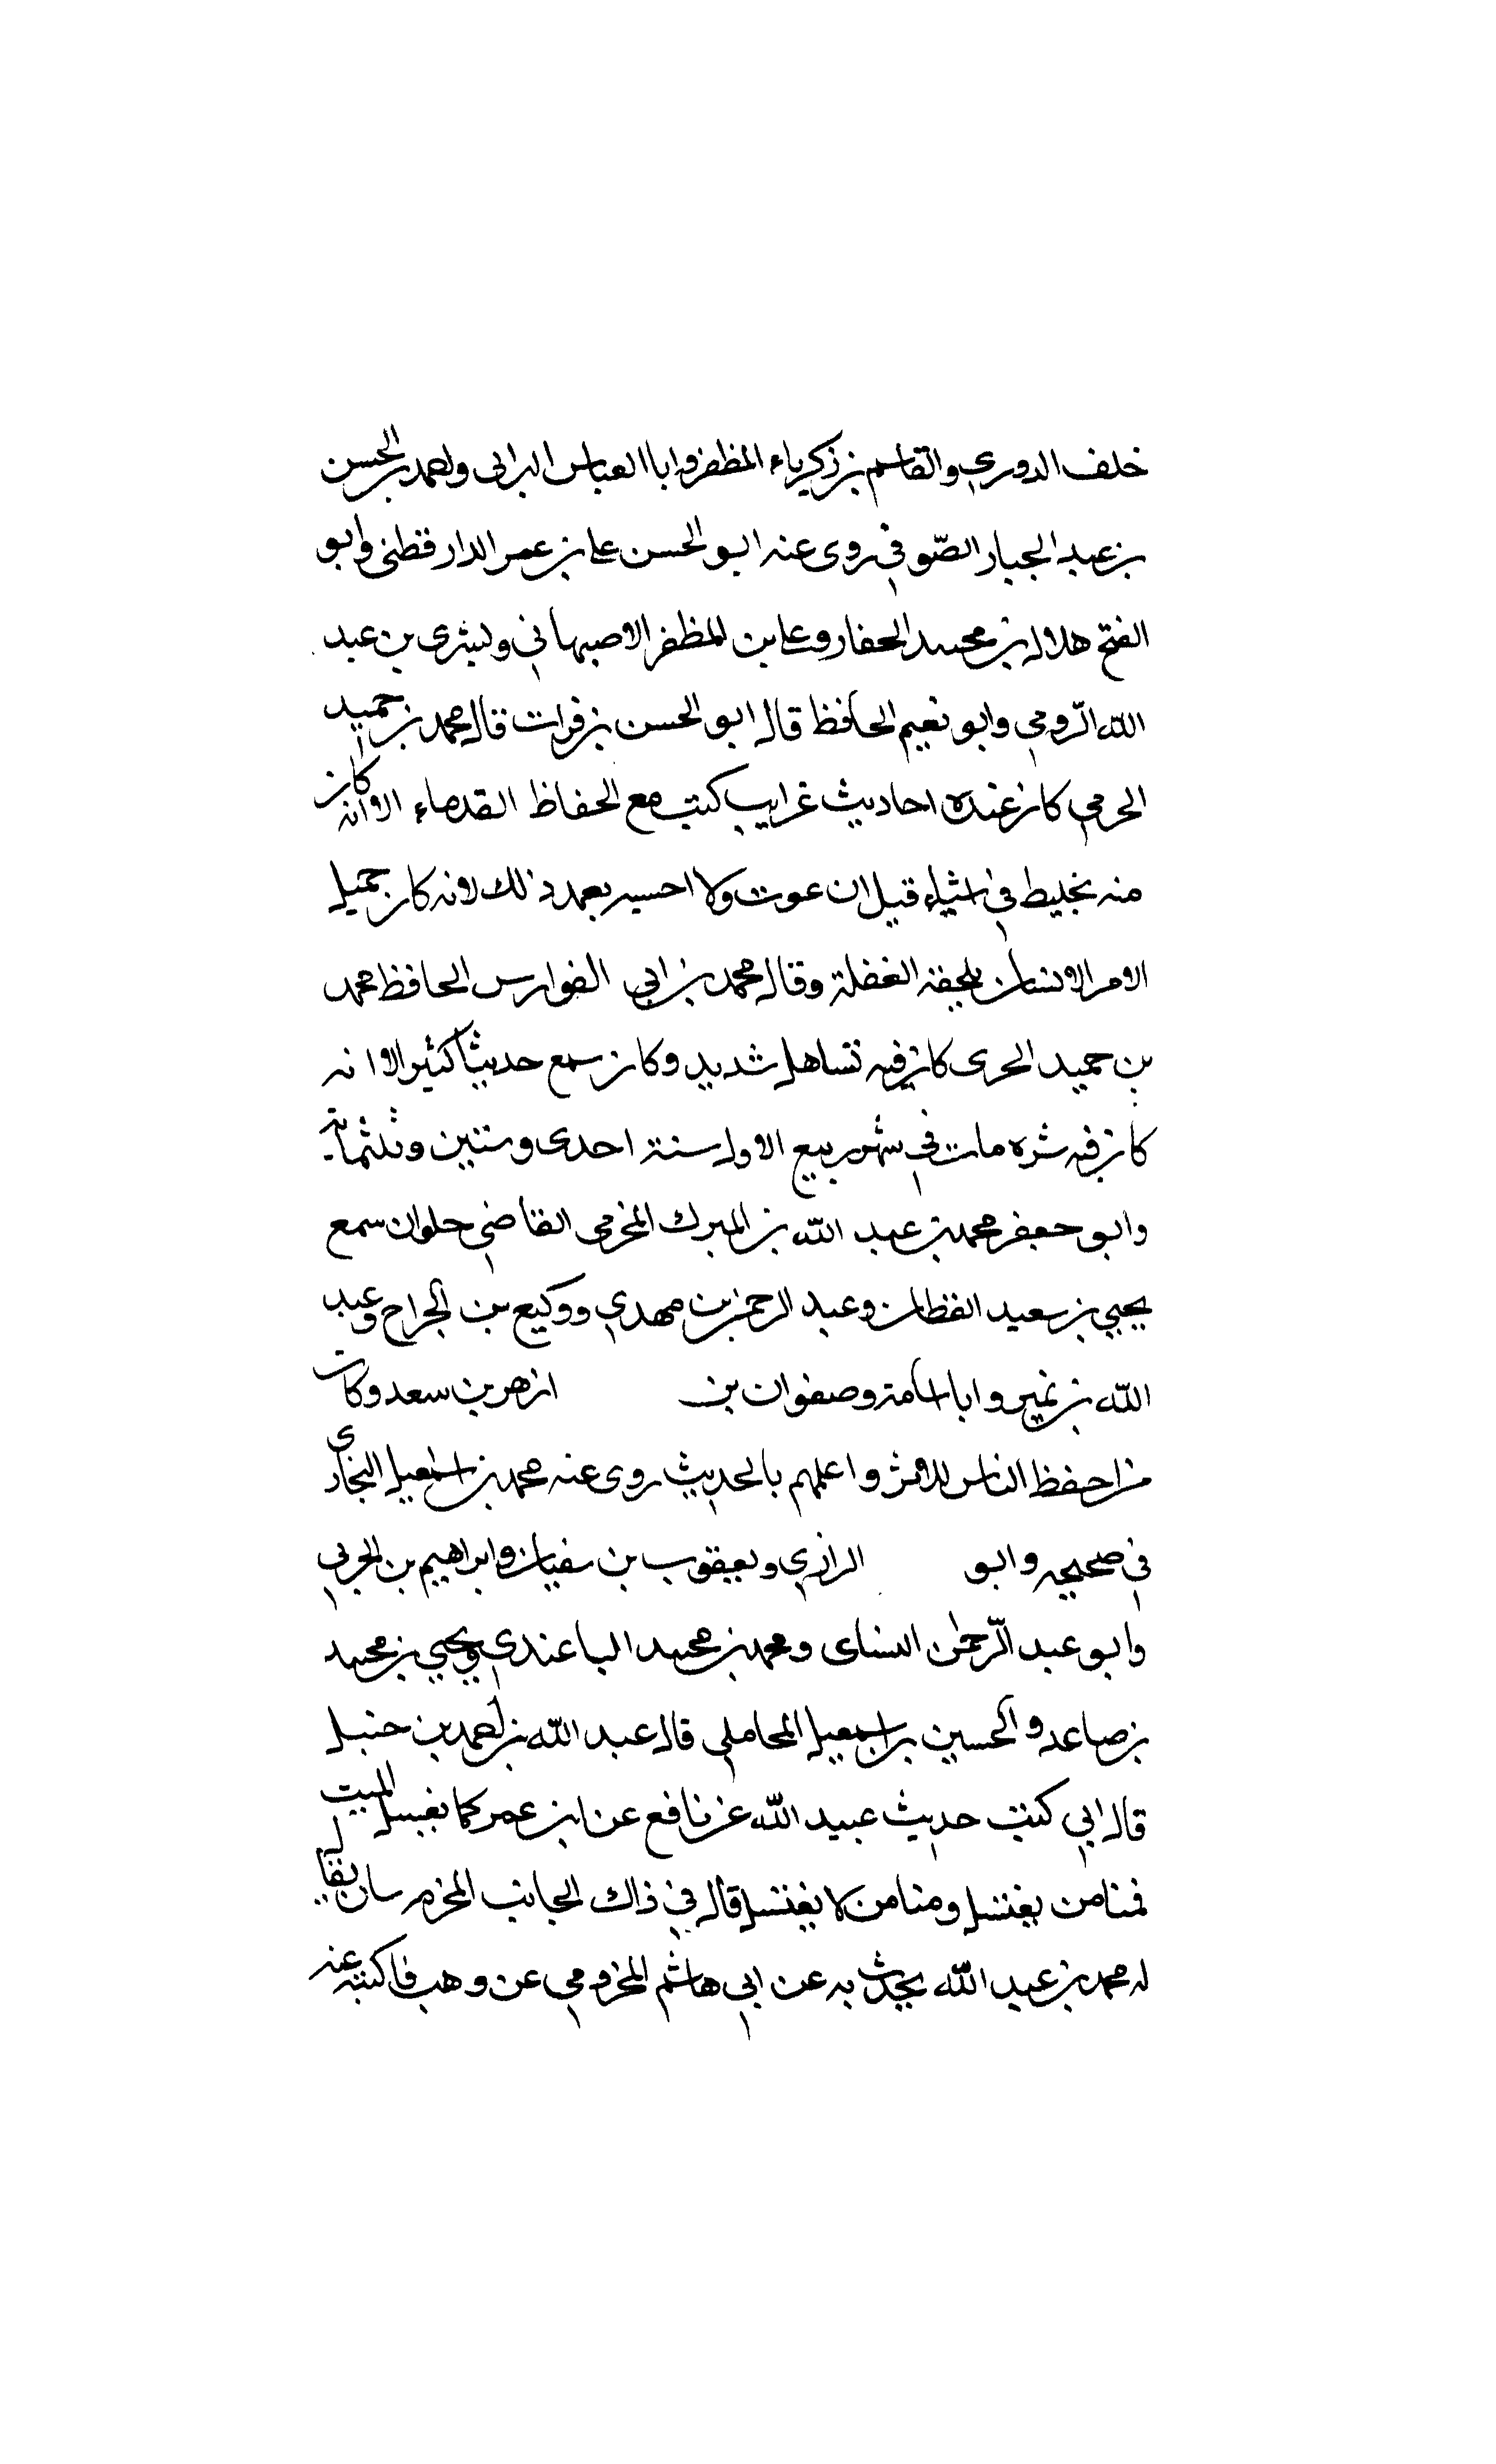 خلف الدوري والقاسم بن زكرياء المظفر وابا العباس البراني واحمد بن الحسن
بن عبد الجبار الصّوفي روى عنه ابو الحسن علي بن عمر الدار قطني وابو
الفتح هلال بن محمد الحفار وعلي بن المظفر الاصبهاني وبشرى بن عبد
الله الرّومي وابو نعيم الحافظ قال ابو الحسن بن فرات قال محمد بن حميد
الخرمي كان عنده احاديث غرايب كتب مع الحفاظ القدماء الا انه كان
منه تخليط في اشياء قبل ان يموت ولا احسبه بعمد ذلك لانه كان جميل
الامر الا نسان يلحقه الغفلة وقال محمد بن ابي الفوارس الحافظ محمد
بن حميد الخرمى كان فيه تساهل شديد وكان سمع حديثاً كثير الا انه
كان فيه شره مات في شهر ربيع الاول سنة احدى وستين وثلثماية
وابو جعفر محمد بن عبد الله بن المبرك المخرمى القاضي حلوان سمع
يحيي بن سعيد القطان وعبد الرحمن بن مهدي ووكيع بن الجراح وعبد
الله بن نمير وابا اسامة وصفوان بن ازهر بن سعد وكان
من احفظ الناس للاثر واعلمهم بالحديث روى عنه محمد بن اسمعيل البخارى
في صحيحه وابو الرازي ويعقوب بن سفيان وابراهيم بن الحربي
وابو عبد الرّحمٰن النساى ومحمد بن محمد الباغندي ويحيي بن محمد
بن صاعد والحسين بن اسمعيل المحاملي قال عبد الله بن احمد بن حنبل
قال ابي كتبت حديث عبيد الله عن نافع عن ابن عمر كما نغسل الميت
فمنا من يغتسل ومنا من لا يغتسل قال في ذاك الجانب المخرم شاب يقال
له محمد بن عبد الله يحدث به عن ابي هاشم المخرومي عن وهب فاكتبه عنه